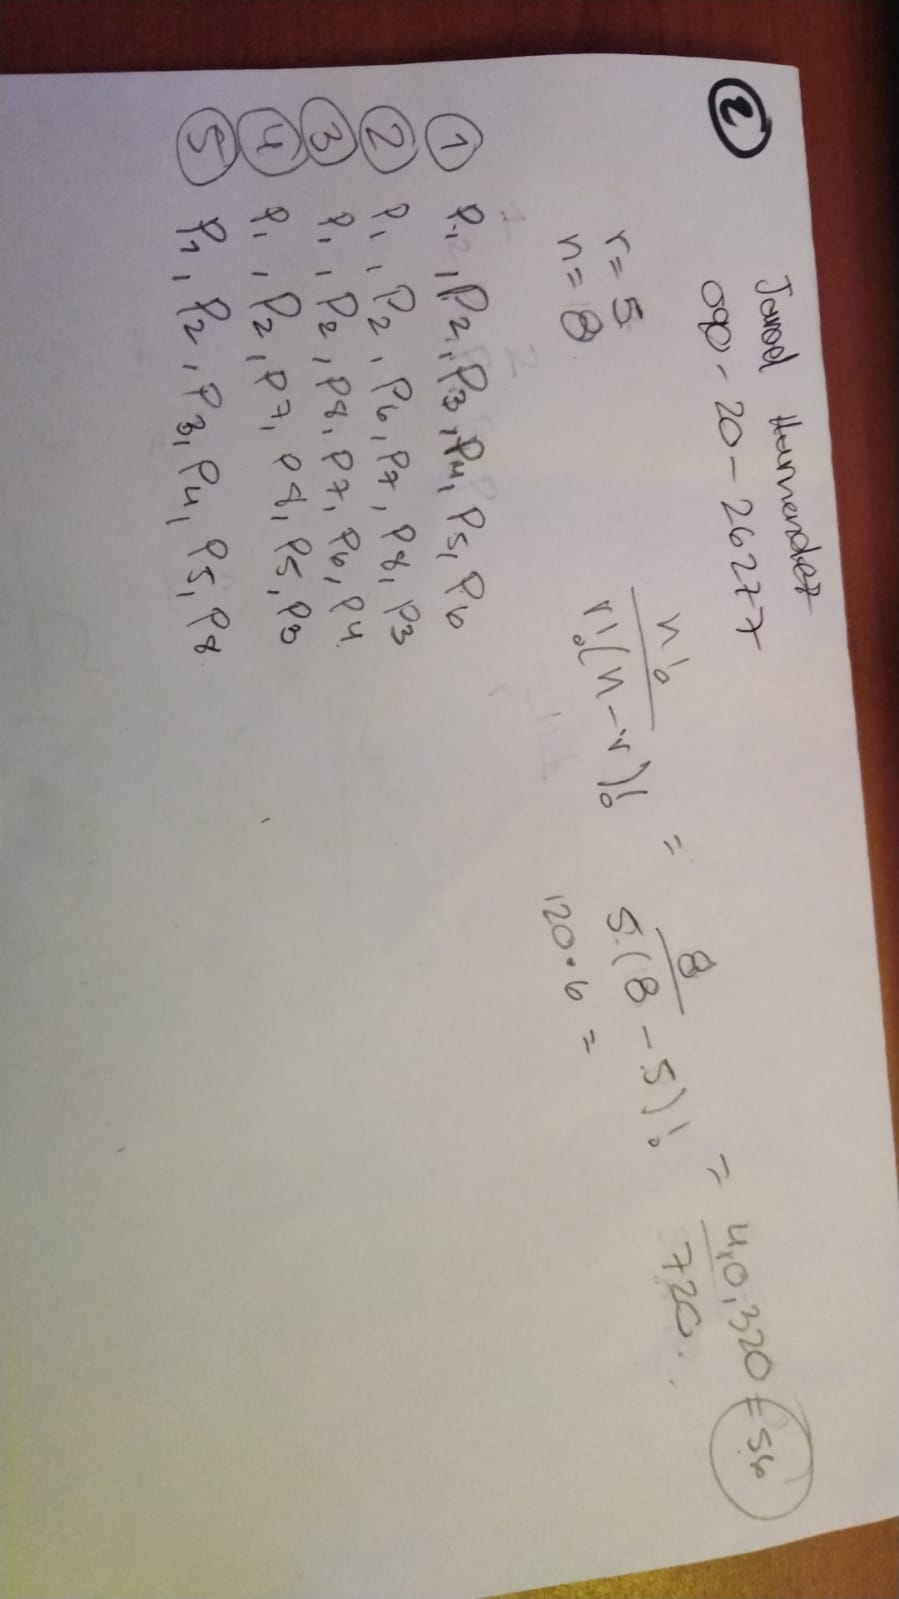 Jarod Hernandez
090-20-26277
2
r= 5
n= 8
n! / r!(n-r)! = 8 / 5.(8-5)! = 40,320 / 720 = 56
120•6 =
1 P1, P2, P3, P4, P5, P6
2 P1, P2, P6, P7, P8, P3
3 P1, P2, P8, P7, P6, P4
4 P1, P2, P7, P8, P5, P3
5 P1, P2, P3, P4, P5, P8